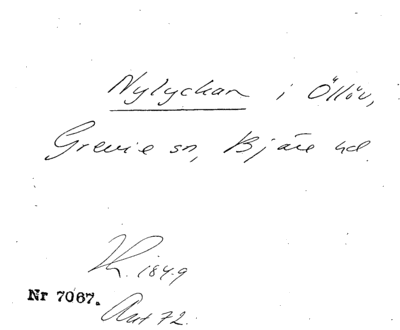 Nylyckan i Öllöv,
Grevie sn, Bjäre hd.
Th. 1849
Nr 7067.
Ant 72.